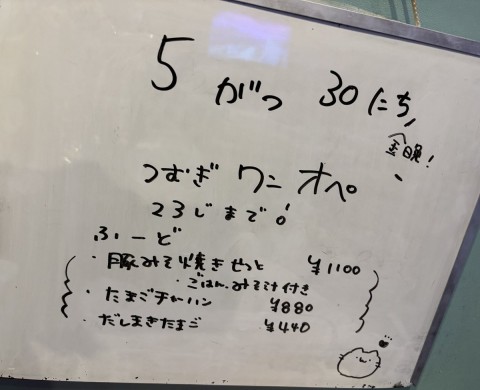 5がつ30にち,
金曜!
つむぎワンオペ
23じまで!
ふーど
・豚みそ焼きせっと ¥1100
・ごはん、みそ汁付き
・たまごチャーハン ¥880
・だしまきたまご ¥440